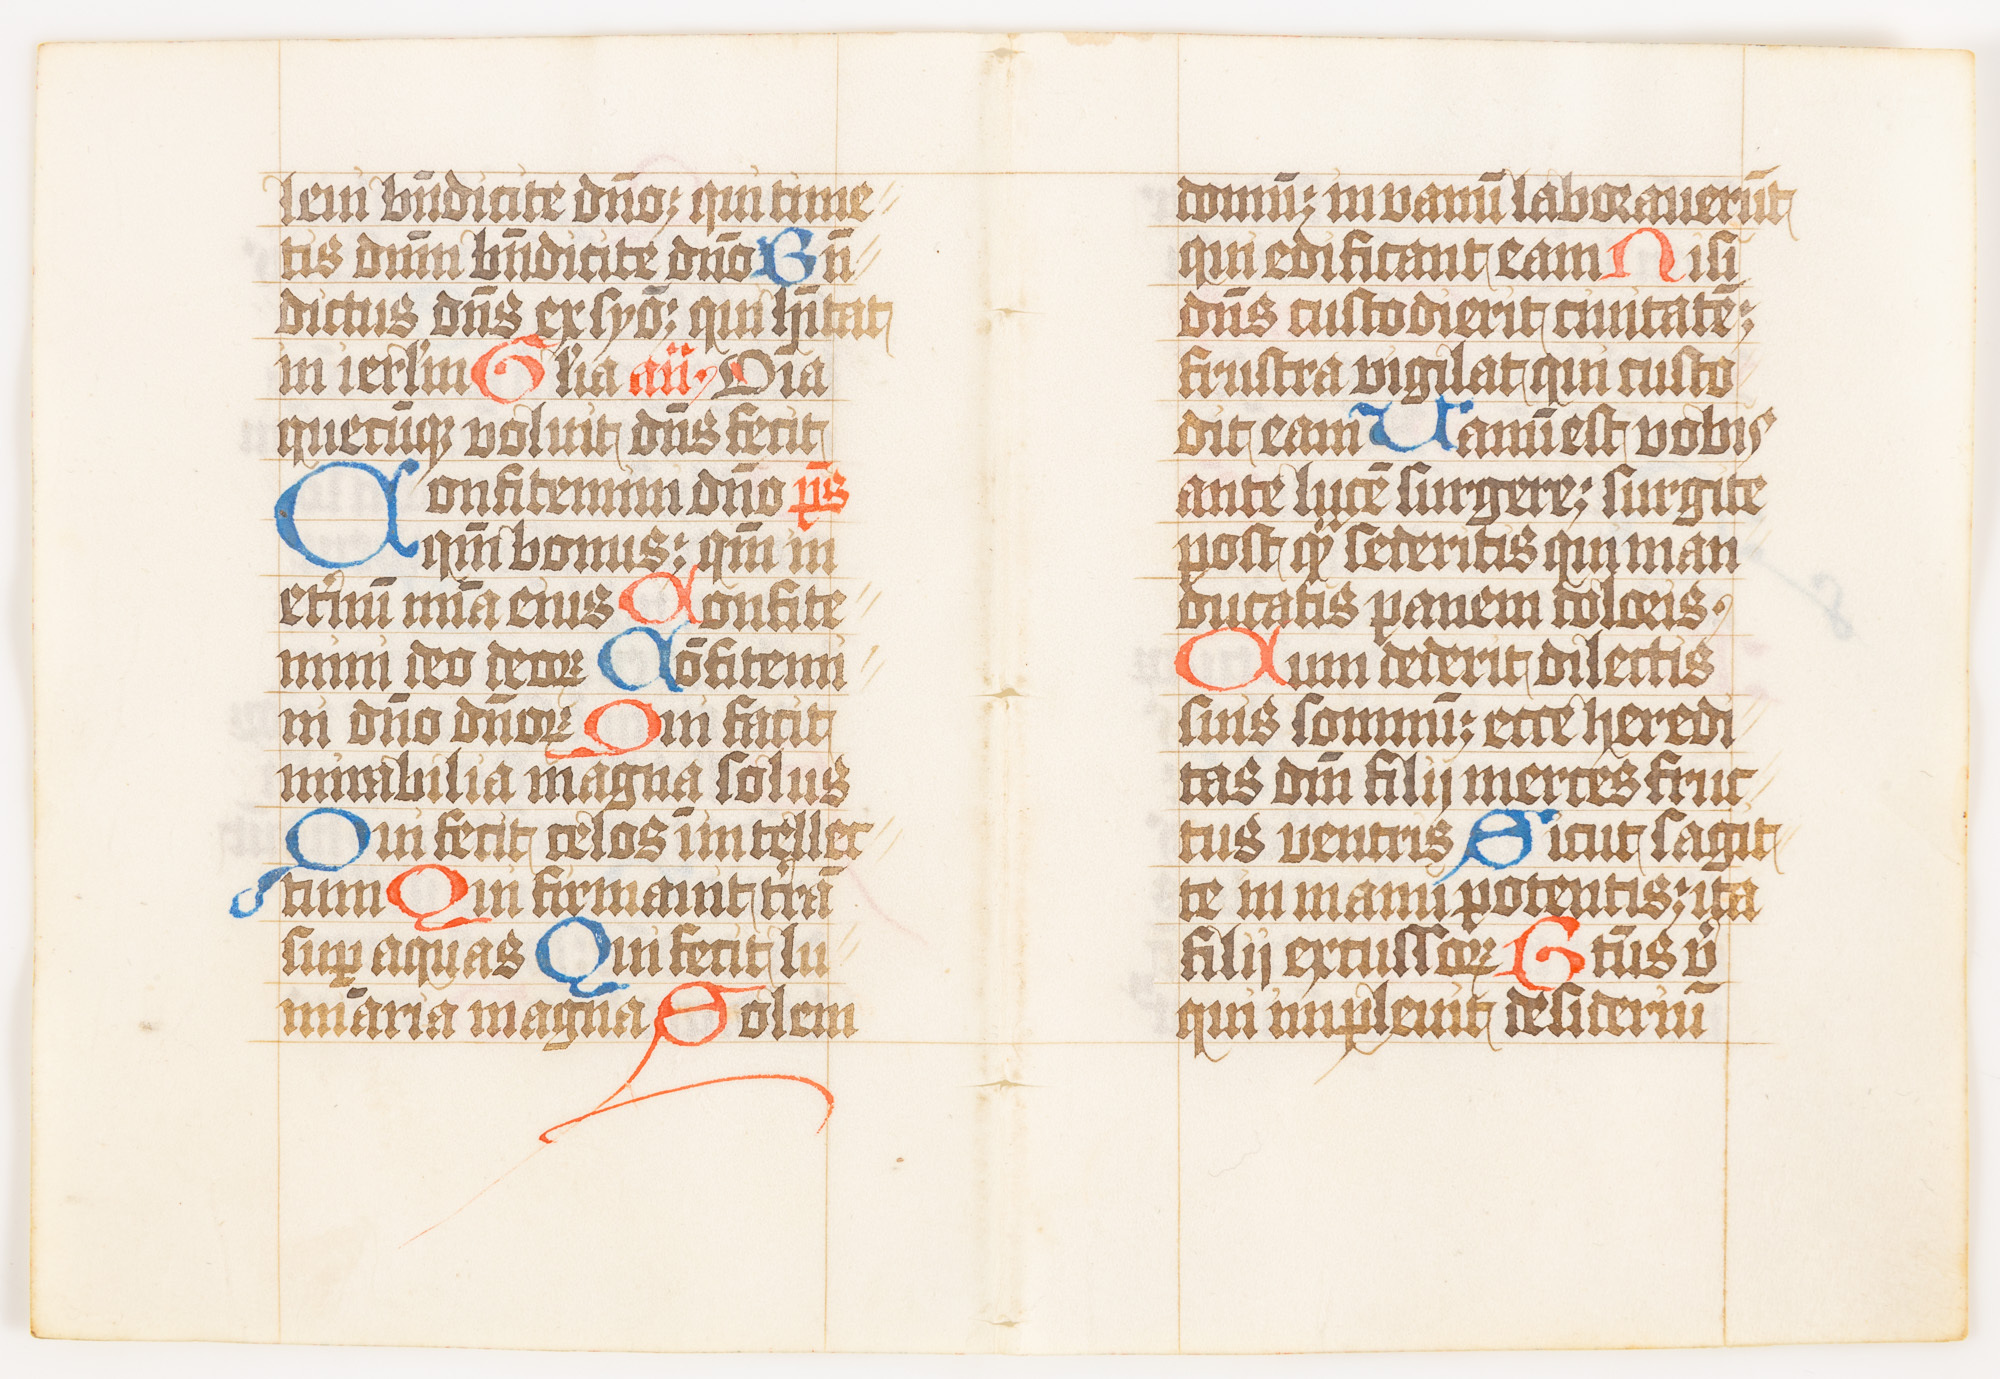 leui bn̄dicite dn̄o; qui time
tis dnm̄ bn̄dicite dn̄o Bn̄
dictus dn̄s ex syō; qui hītat
in ierl̄m Glīa an̄ Oīa
quecūqꝫ voluit dn̄s fecit
Confitemini dn̄o ps̄
qm̄ bonus; qm̄ in
et'nū mīa eius Confite
mini deo deoꝝ Cōfitemi
ni dn̄o dn̄oꝝ Qui facit
mirabilia magna solus
Qui fecit celos īm tellec
tum Qui firmauit t'rā
suꝑ aquas Qui fecit lu
mīaria magna Solem
domū; in vanū laborauerūt
qui edificant eam Nisi
dn̄s custodierit ciuitatē;
frustra vigilat qui custo
dit eam Uanū est vobis
ante lucē surgere; surgite
post qͣ sederitis qui man
ducatis panem doloris
Cum dederit dilectis
suis somnū; ecce heredi
tas dnī filij merces fruc
tus ventris Sicut sagit
te in manu potentis; ita
filij excussoꝝ Btūs vͥ
qui impleuit desideriū